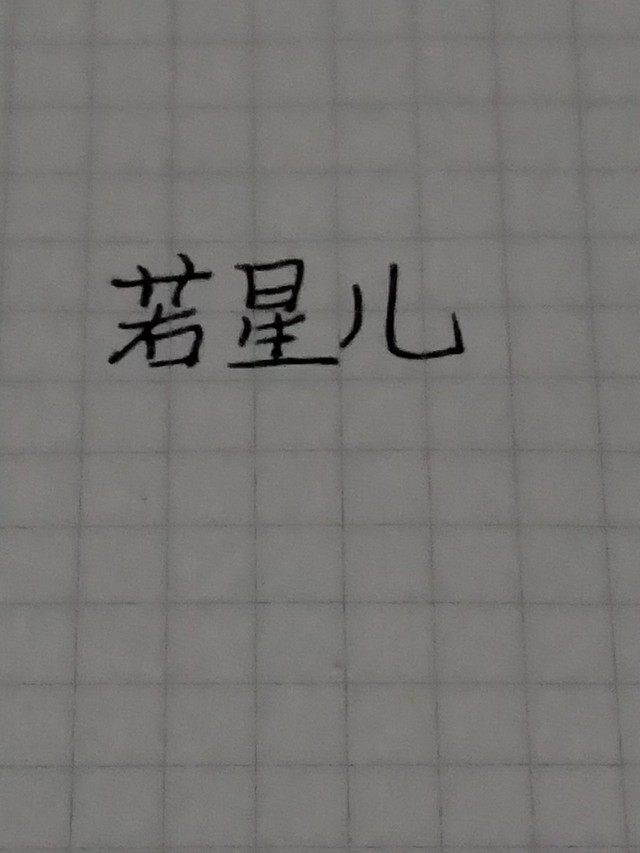 若星儿